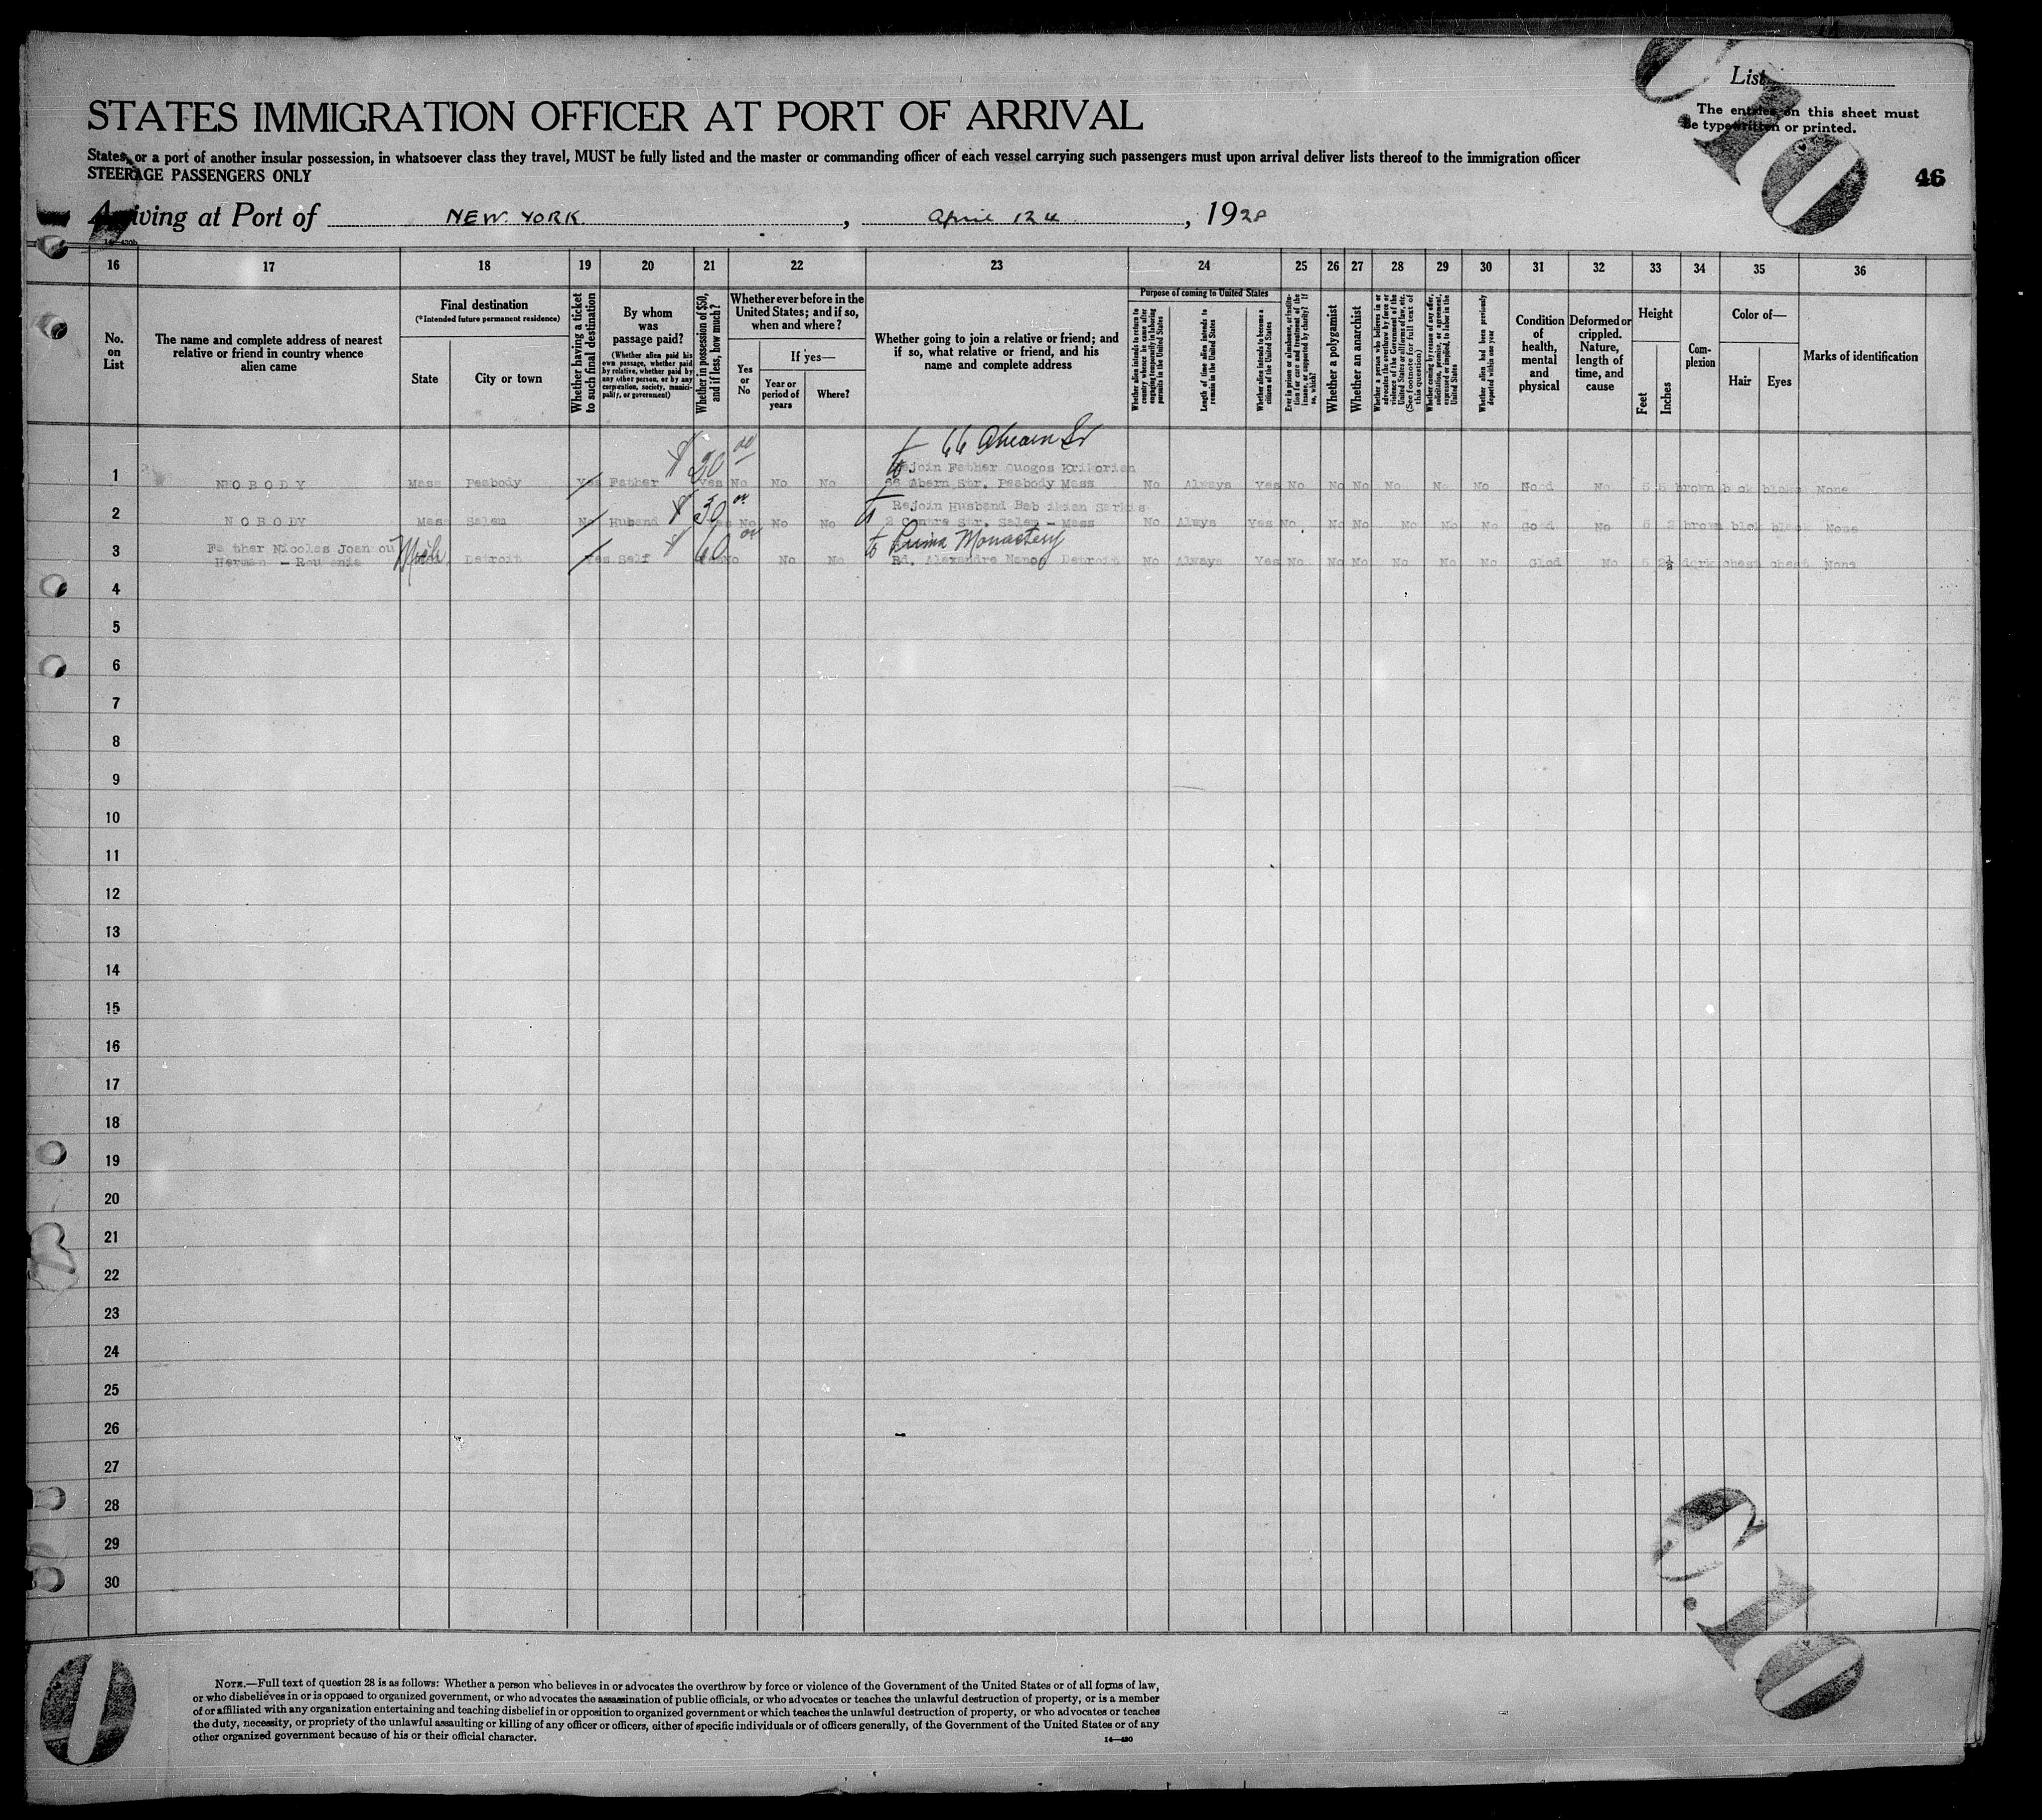 List
The entries on this sheet must
be typewritten or printed.
46
STATES IMMIGRATION OFFICER AT PORT OF ARRIVAL
States, or a port of another insular possession, in whatsoever class they travel, MUST be fully listed and the master or commanding officer of each vessel carrying such passengers must upon arrival deliver lists thereof to the immigration officer
STEERAGE PASSENGERS ONLY
Arriving at Port of NEW YORK, April 12 1928
16 17 18 19 20 21 22 23 24 25 26 27 28 29 30 31 32 33 34 35 36
No. on List
The name and complete address of nearest
relative or friend in country whence
alien came
Final destination
(*Intended future permanent residence)
State
City or town
Whether having a ticket
to such final destination
By whom
was
passage paid?
(Whether alien paid his
own passage, whether paid
by relative, whether paid by
any other person, or by any
corporation, society, munici-
pality, or government)
Whether in possession of $50,
and if less, how much?
Whether ever before in the
United States; and if so,
when and where?
Yes
or
No
If yes—
Year or
period of
years
Where?
Whether going to join a relative or friend; and
if so, what relative or friend, and his
name and complete address
Purpose of coming to United States
Whether alien intends to return to
country whence he came after
engaging temporarily in laboring
pursuits in the United States
Length of time alien intends to
remain in the United States
Whether alien intends to become a
citizen of the United States
Ever in prison or almshouse, or institu-
tion for care and treatment of the
insane, or supported by charity? If
so, which?
Whether a polygamist
Whether an anarchist
Whether a person who believes in or
advocates the overthrow by force or
violence of the Government of the
United States or all forms of law, etc.
(See footnote for full text of
this question)
Whether coming by reason of any offer,
solicitation, promise, or agreement,
expressed or implied, to labor in the
United States
Whether alien had been previously
deported within one year
Condition
of
health,
mental
and
physical
Deformed or
crippled.
Nature,
length of
time, and
cause
Height
Feet
Inches
Com-
plexion
Color of—
Hair
Eyes
Marks of identification
$20 00 to 66 Ahearn St
Rejoin Father Guogos Krikorian
1 NOBODY Mass Peabody Yes Father Yes No No No 66 Abern Str. Peabody Mass No Always Yes No No No No No No Good No 5 5 brown black None
$30 00 to Rejoin Husband Bab ikian Sarkis
2 NOBODY Mass Salem No Husband Yes No No No 2 Str. Salem - Mass No Always Yes No No No No No No Good No 5 2 brown None
$60 00 to Monastery
3 Father Nicolas Joannou
Herman - Roumania Mich Detroit Yes Self Yes No No No Rd. Alexandre Detroit No Always Yes No No No No No No Good No 5 2½ dark chest chest None
4
5
6
7
8
9
10
11
12
13
14
15
16
17
18
19
20
21
22
23
24
25
26
27
28
29
30
NOTE.—Full text of question 28 is as follows: Whether a person who believes in or advocates the overthrow by force or violence of the Government of the United States or of all forms of law,
or who disbelieves in or is opposed to organized government, or who advocates the assassination of public officials, or who advocates or teaches the unlawful destruction of property, or is a member
of or affiliated with any organization entertaining and teaching disbelief in or opposition to organized government or which teaches the unlawful destruction of property, or who advocates or teaches
the duty, necessity, or propriety of the unlawful assaulting or killing of any officer or officers, either of specific individuals or of officers generally, of the Government of the United States or of any
other organized government because of his or their official character.
14—430